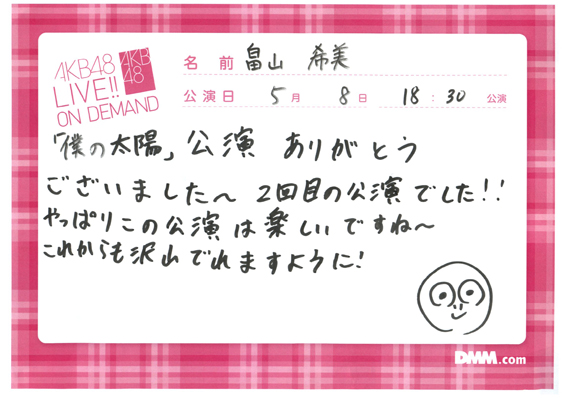 AKB48
LIVE!!
ON DEMAND
AKB
48
名前 畠山 希美
公演日 5月 8日 18:30 公演
「僕の太陽」公演 ありがとう
ございました〜 2回目の公演でした!!
やっぱりこの公演は楽しいですね〜
これからも沢山でれますように!
DMM.com